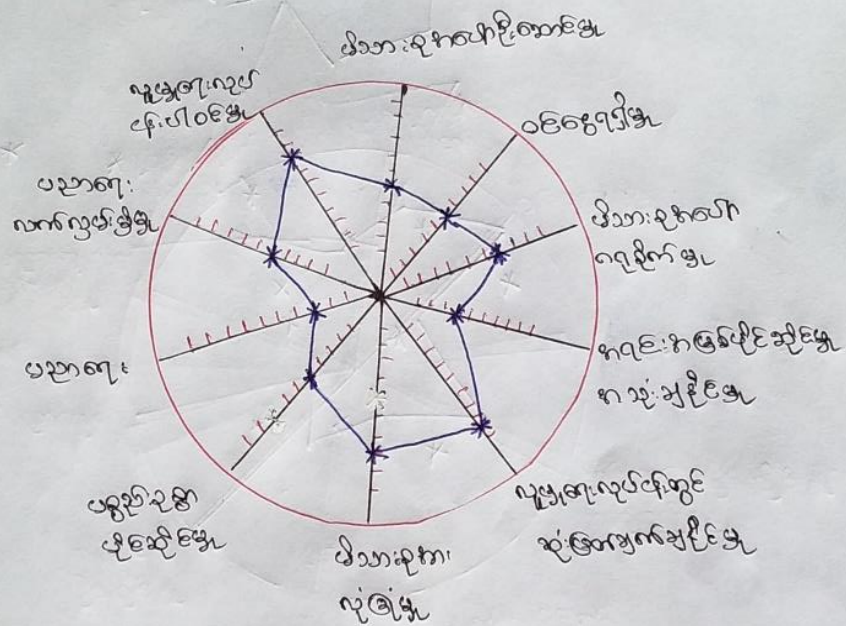 မိသားစုအပေါ်ဦးဆောင်မှု
ဝင်ငွေရရှိမှု
မိသားစုအပေါ်
ဂရုစိုက်မှု
အရင်းအမြစ်ပိုင်ဆိုင်မှု
အသုံးချနိုင်မှု
လူမှုရေးလုပ်ငန်းတွင်
ဆုံးဖြတ်ချက်ချနိုင်မှု
မိသားစုအား
လုံခြုံမှု
ပစ္စည်းဥစ္စာ
ပိုင်ဆိုင်မှု
ပညာရေး
ပညာရေး
လက်လှမ်းမှီမှု
လူမှုရေးလုပ်
ငန်းပါဝင်မှု